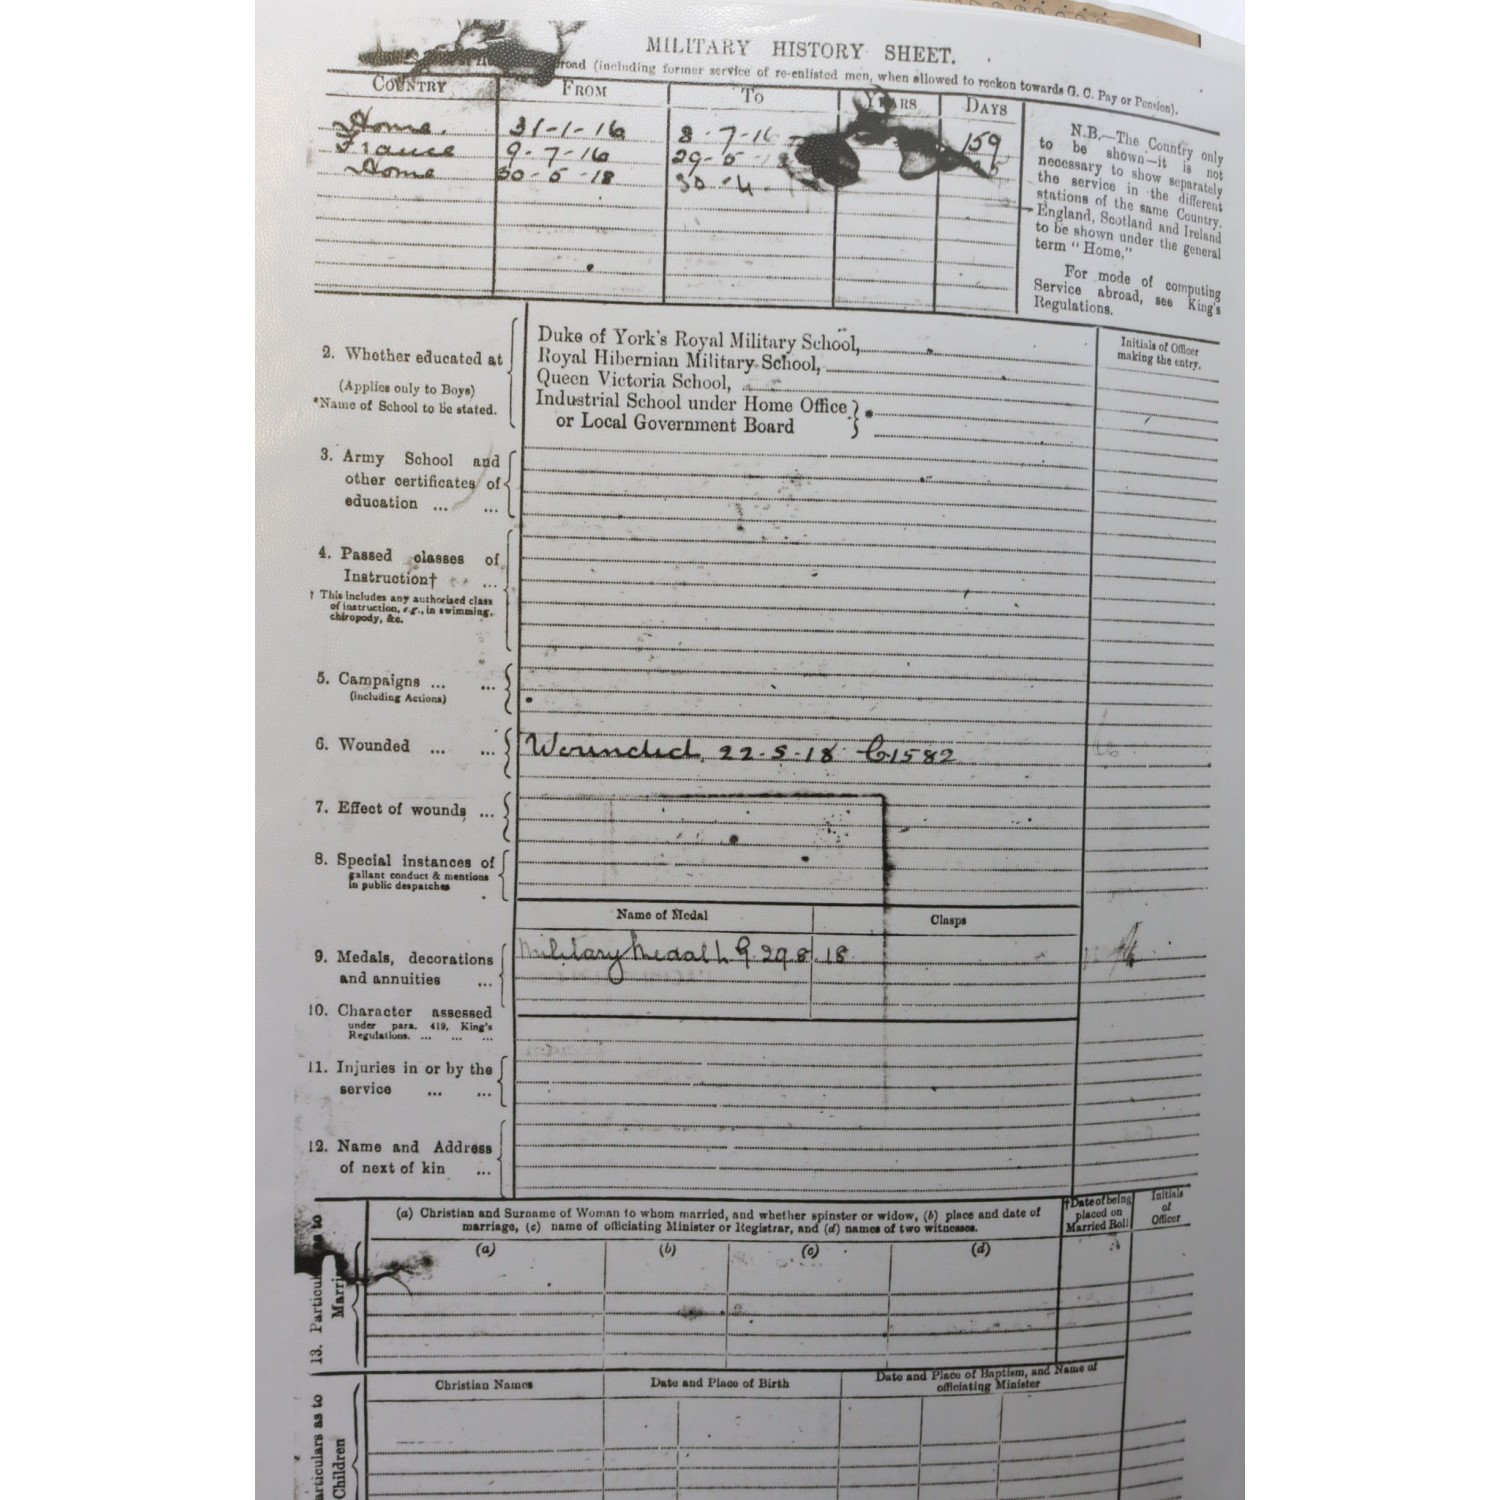 MILITARY HISTORY SHEET.
(including former service of re-enlisted men, when allowed to reckon towards G. C. Pay or Pension).
COUNTRY FROM TO YEARS DAYS
Home. 31-1-16 8-7-16 159
France 9-7-16 29-5-
Home 30-5-18 30-4
N.B.—The Country only
to be shown—it is not
necessary to show separately
the service in the different
stations of the same Country.
England, Scotland and Ireland
to be shown under the general
term "Home."
For mode of computing
Service abroad, see King's
Regulations.
Initials of Officer
making the entry.
2. Whether educated at
(Applies only to Boys)
*Name of School to be stated.
Duke of York's Royal Military School,
Royal Hibernian Military School,
Queen Victoria School,
Industrial School under Home Office
or Local Government Board
3. Army School and
other certificates of
education ... ...
4. Passed classes of
Instruction† ...
† This includes any authorised class
of instruction, e.g., in swimming,
chiropody, &c.
5. Campaigns ... ...
(including Actions)
6. Wounded ... ... Wounded, 22-5-18 C1582
7. Effect of wounds ...
8. Special instances of
gallant conduct & mentions
in public despatches
Name of Medal Clasps
9. Medals, decorations
and annuities ...
Military Medal L.G. 29.8.18
10. Character assessed
under para. 419, King's
Regulations. ... ... ...
11. Injuries in or by the
service ... ...
12. Name and Address
of next of kin ...
(a) Christian and Surname of Woman to whom married, and whether spinster or widow, (b) place and date of
marriage, (c) name of officiating Minister or Registrar, and (d) names of two witnesses.
†Date of being
placed on
Married Roll
Initials
of
Officer
(a) (b) (c) (d)
13.
Christian Names Date and Place of Birth Date and Place of Baptism, and Name of
officiating Minister
Children